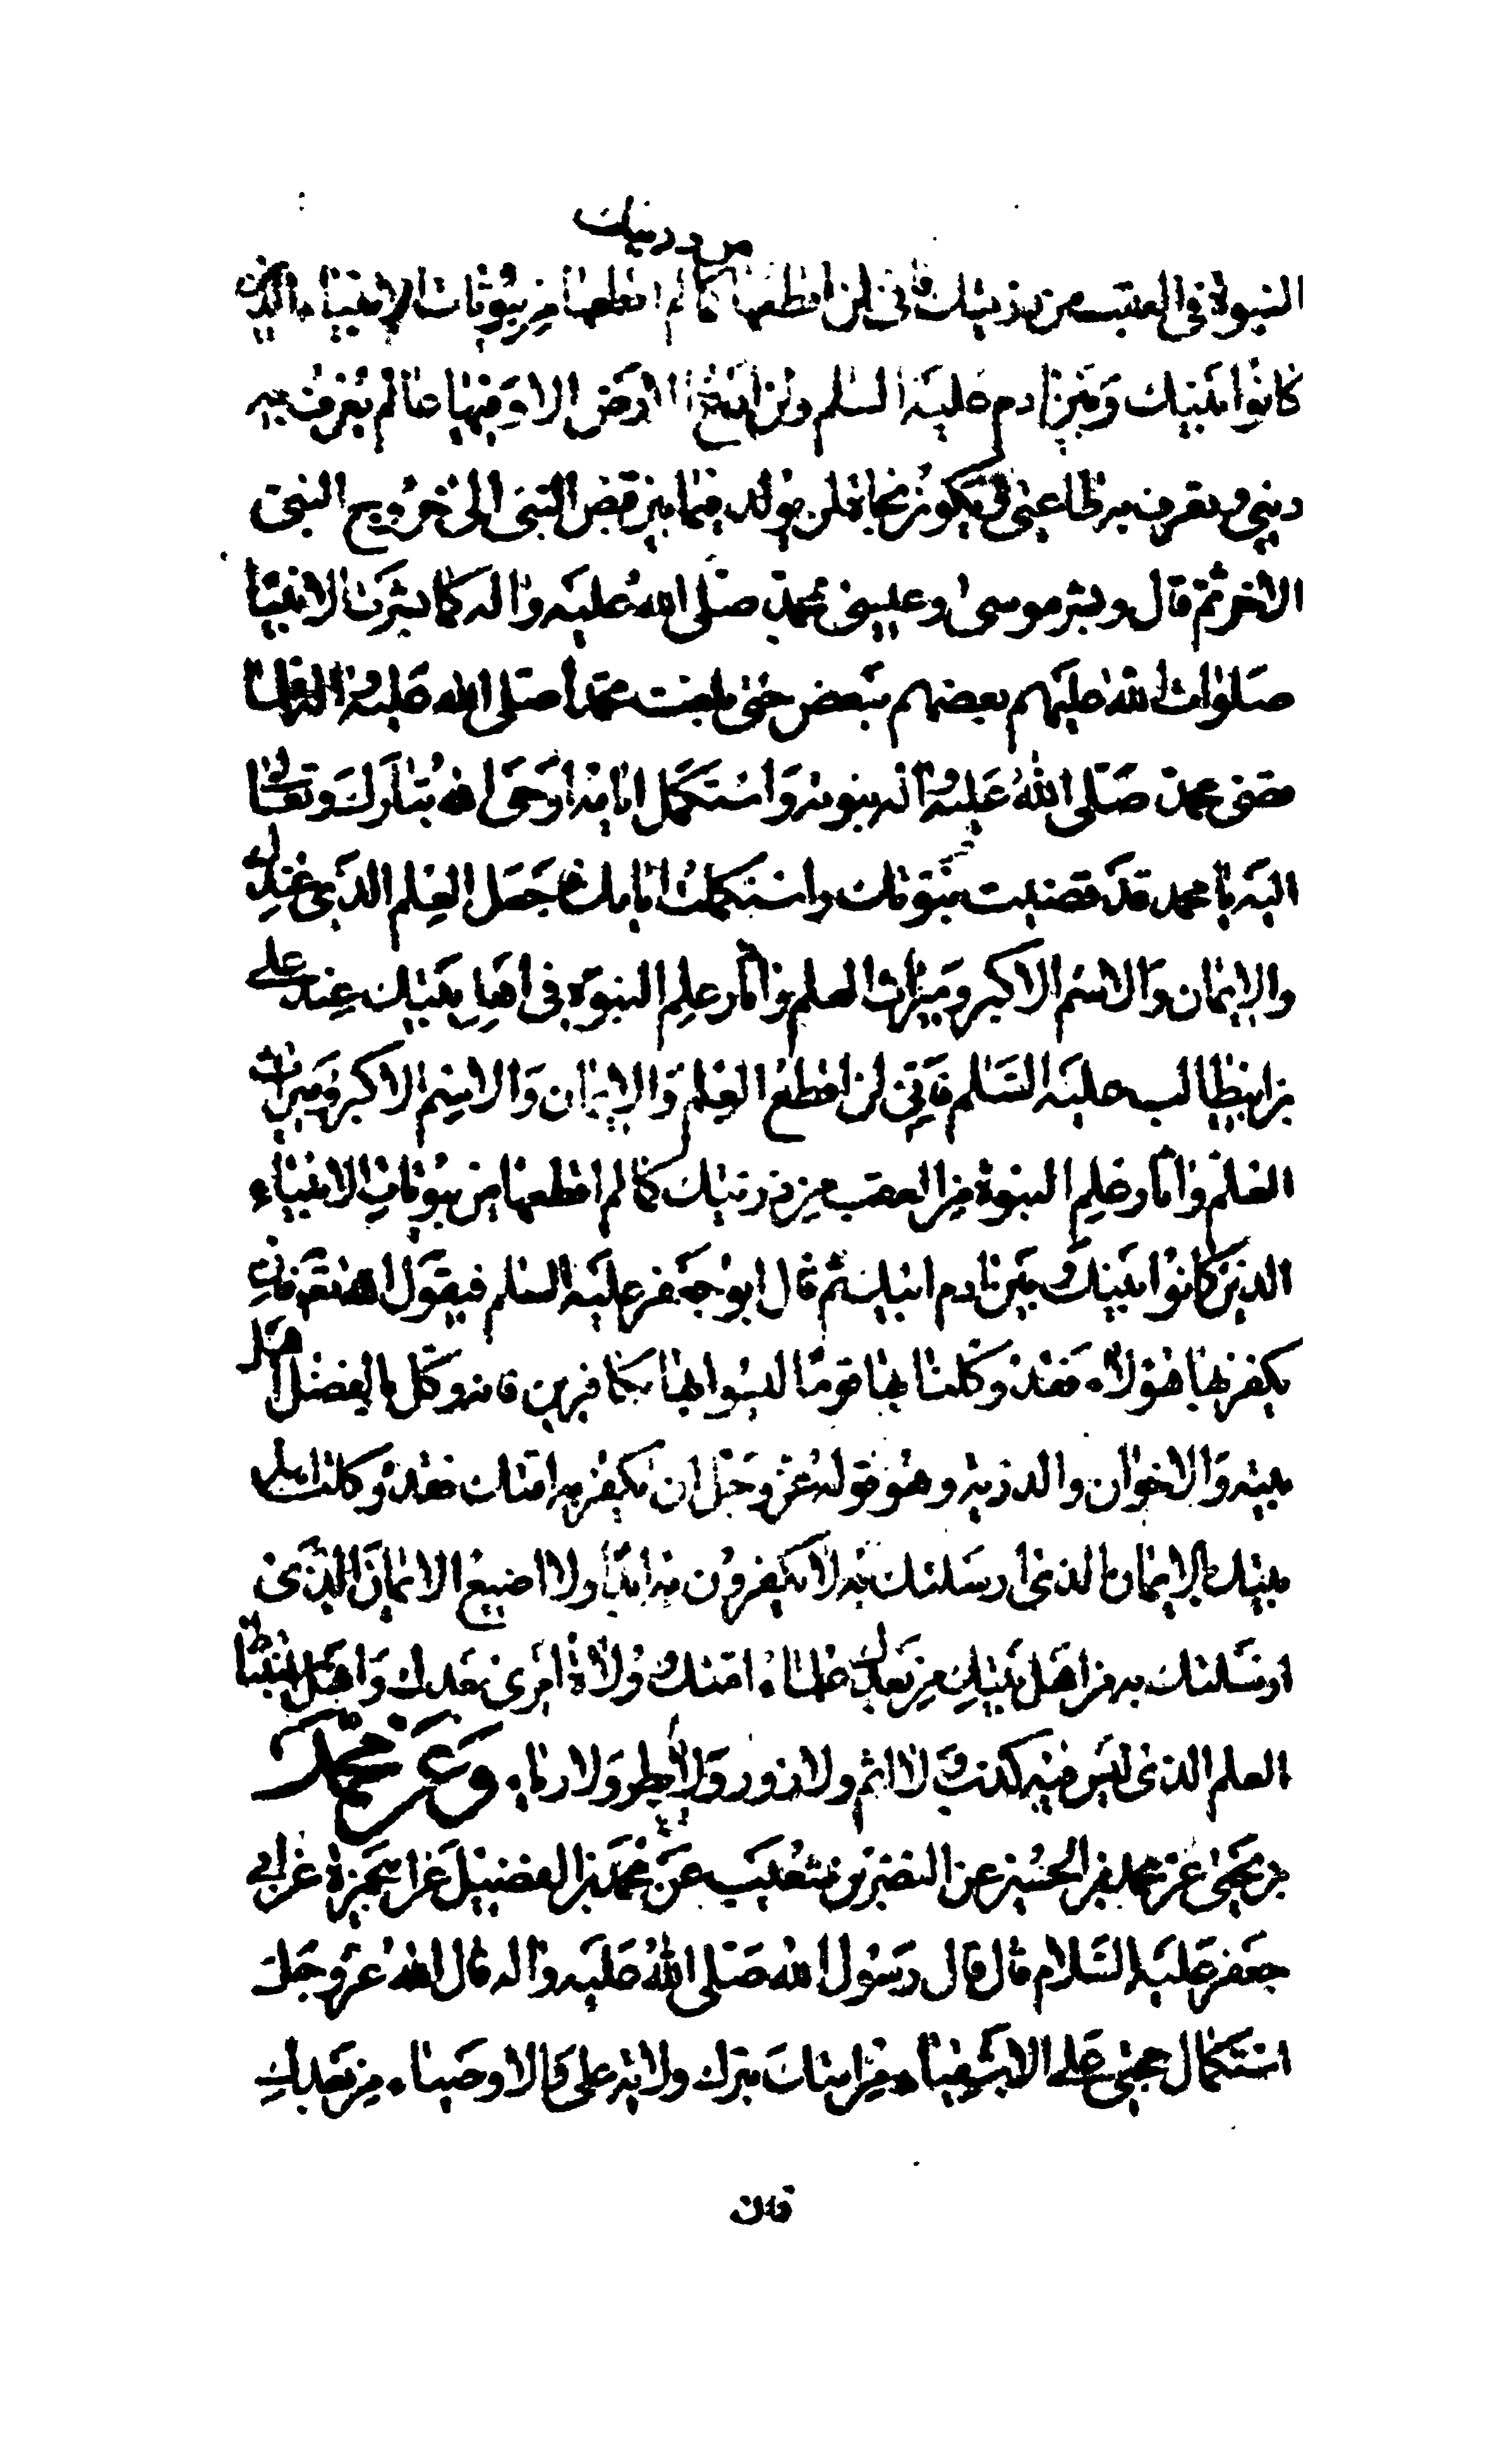 من ذريتك
النبوة في العقب من ذريتك فاني لن اقطعها كما لم اقطعها من بيوتات الانبياء الذين
كانوا بينك وبين ادم عليه السلم ولن ادع الارض الا وفيها عالم يعرف به
ديني ويعرف به طاعتي ويكون نجاة لمن يولد فيما بين قبض النبي الى خروج النبي
الاخر ثم قال وبشر موسى وعيسى بمحمد صلى الله عليه واله كما بشرت الانبيا
صلوات الله عليهم بعضهم ببعض حتى بلغت محمدا صلى الله عليه واله فلما
قضى محمد صلى الله عليه واله نبوته واستكمل ايامه اوحى الله تبارك وتعالى
اليه يا محمد قد قضيت نبوتك واستكملت ايامك فاجعل العلم الذي عندك
والايمان والاسم الاكبر وميراث العلم واثار علم النبوة في اهل بيتك عند علي
بن ابيطالب عليه السلم فاني لن اقطع العلم والايمان والاسم الاكبر وميراث
العلم واثار علم النبوة من العقب من ذريتك كما لم اقطعها من بيوتات الانبياء
الذين كانوا بينك وبين ادم ابيك ثم قال ابو جعفر عليه السلم فيقول الله فان
يكفر بها هؤلاء فقد وكلنا بها قوما ليسوا بها بكافرين فانه وكل بالفضل اهل
بيته والاخوان والذرية وهو قوله عز وجل ان يكفر به امتك فقد وكلنا اهل
بيتك بالايمان الذي ارسلتك به لا يكفرون به ابدا ولا اضيع الايمان الذي
ارسلتك به من اهل بيتك من بعدك علماء امتك وولاة امري بعدك واهل استنباط
العلم الذي ليس فيه كذب ولا اثم ولا زور ولا بطر ولا رياء وعن محمد
بن يحيى عن محمد بن الحسين عن النضر بن شعيب عن محمد بن الفضيل عن ابي حمزة عن ابي
جعفر عليه السلام قال قال رسول الله صلى الله عليه واله قال الله عز وجل
استكمال حجتي على الاشقياء من امتك بترك ولاية علي والاوصياء من بعدك
فان